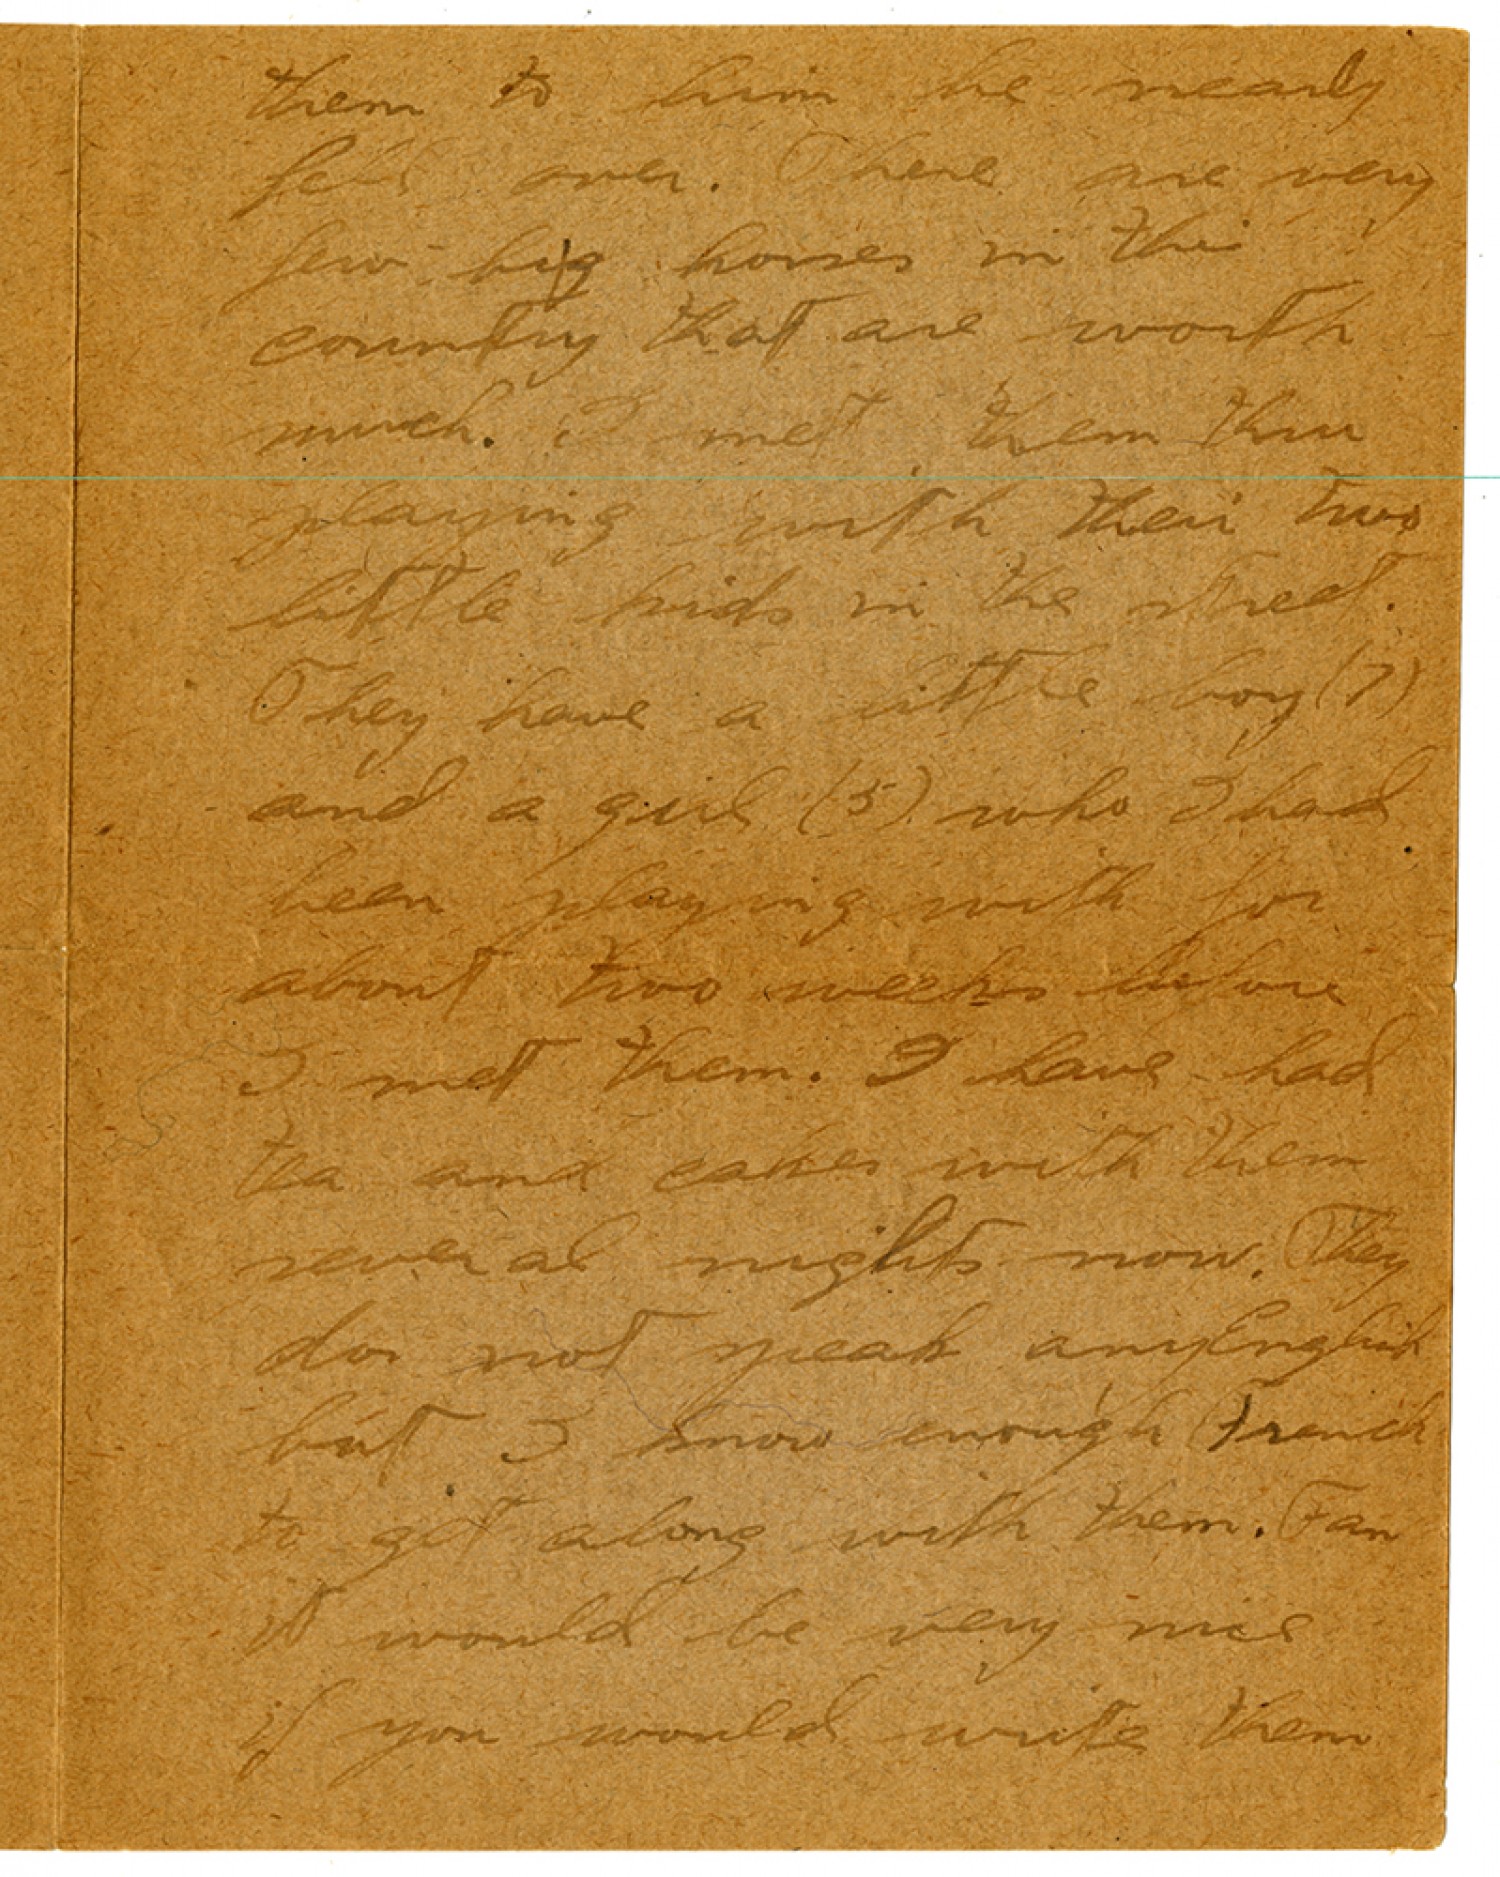 them to him he nearly
fell over. There are very
few big horses in this
country that are worth
much. I met them thru
playing with their two
little kids in the street.
They have a little boy (7)
and a girl (5) who I had
been playing with for
about two weeks before
I met them. I have had
tea and cakes with them
several nights now. They
do not speak any English
but I know enough French
to get along with them. Fan
it would be very nice
if you would write them